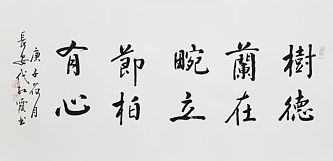 樹德
蘭在
畹立
節柏
有心
庚子荷月
長安代紅霞書